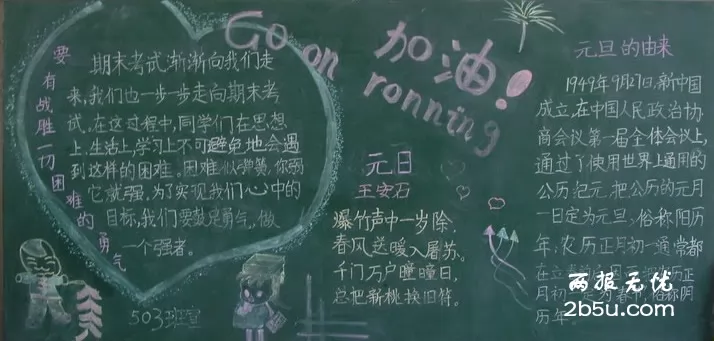 要有战胜一切困难的勇气
期末考试渐渐向我们走
来,我们也一步一步走向期末考
试,在这过程中,同学们在思想
上,生活上,学习上不可避免地会遇
到这样的困难。困难似弹簧,你弱
它就强。为了实现我们心中的
目标,我们要鼓足勇气,做
一个强者。
503班宣
Go on
ronning
加油!
元日
王安石
爆竹声中一岁除,
春风送暖入屠苏。
千门万户曈曈日,
总把新桃换旧符。
元旦的由来
1949年9月27日,新中国
成立,在中国人民政治协
商会议第一届全体会议上,
通过了使用世界上通用的
公历纪元,把公历的元月
一日定为元旦,俗称阳历
年,农历正月初一通常都
在立春
历正
月初一定为春节,俗称阴
历年。
两报无忧
2b5u.com